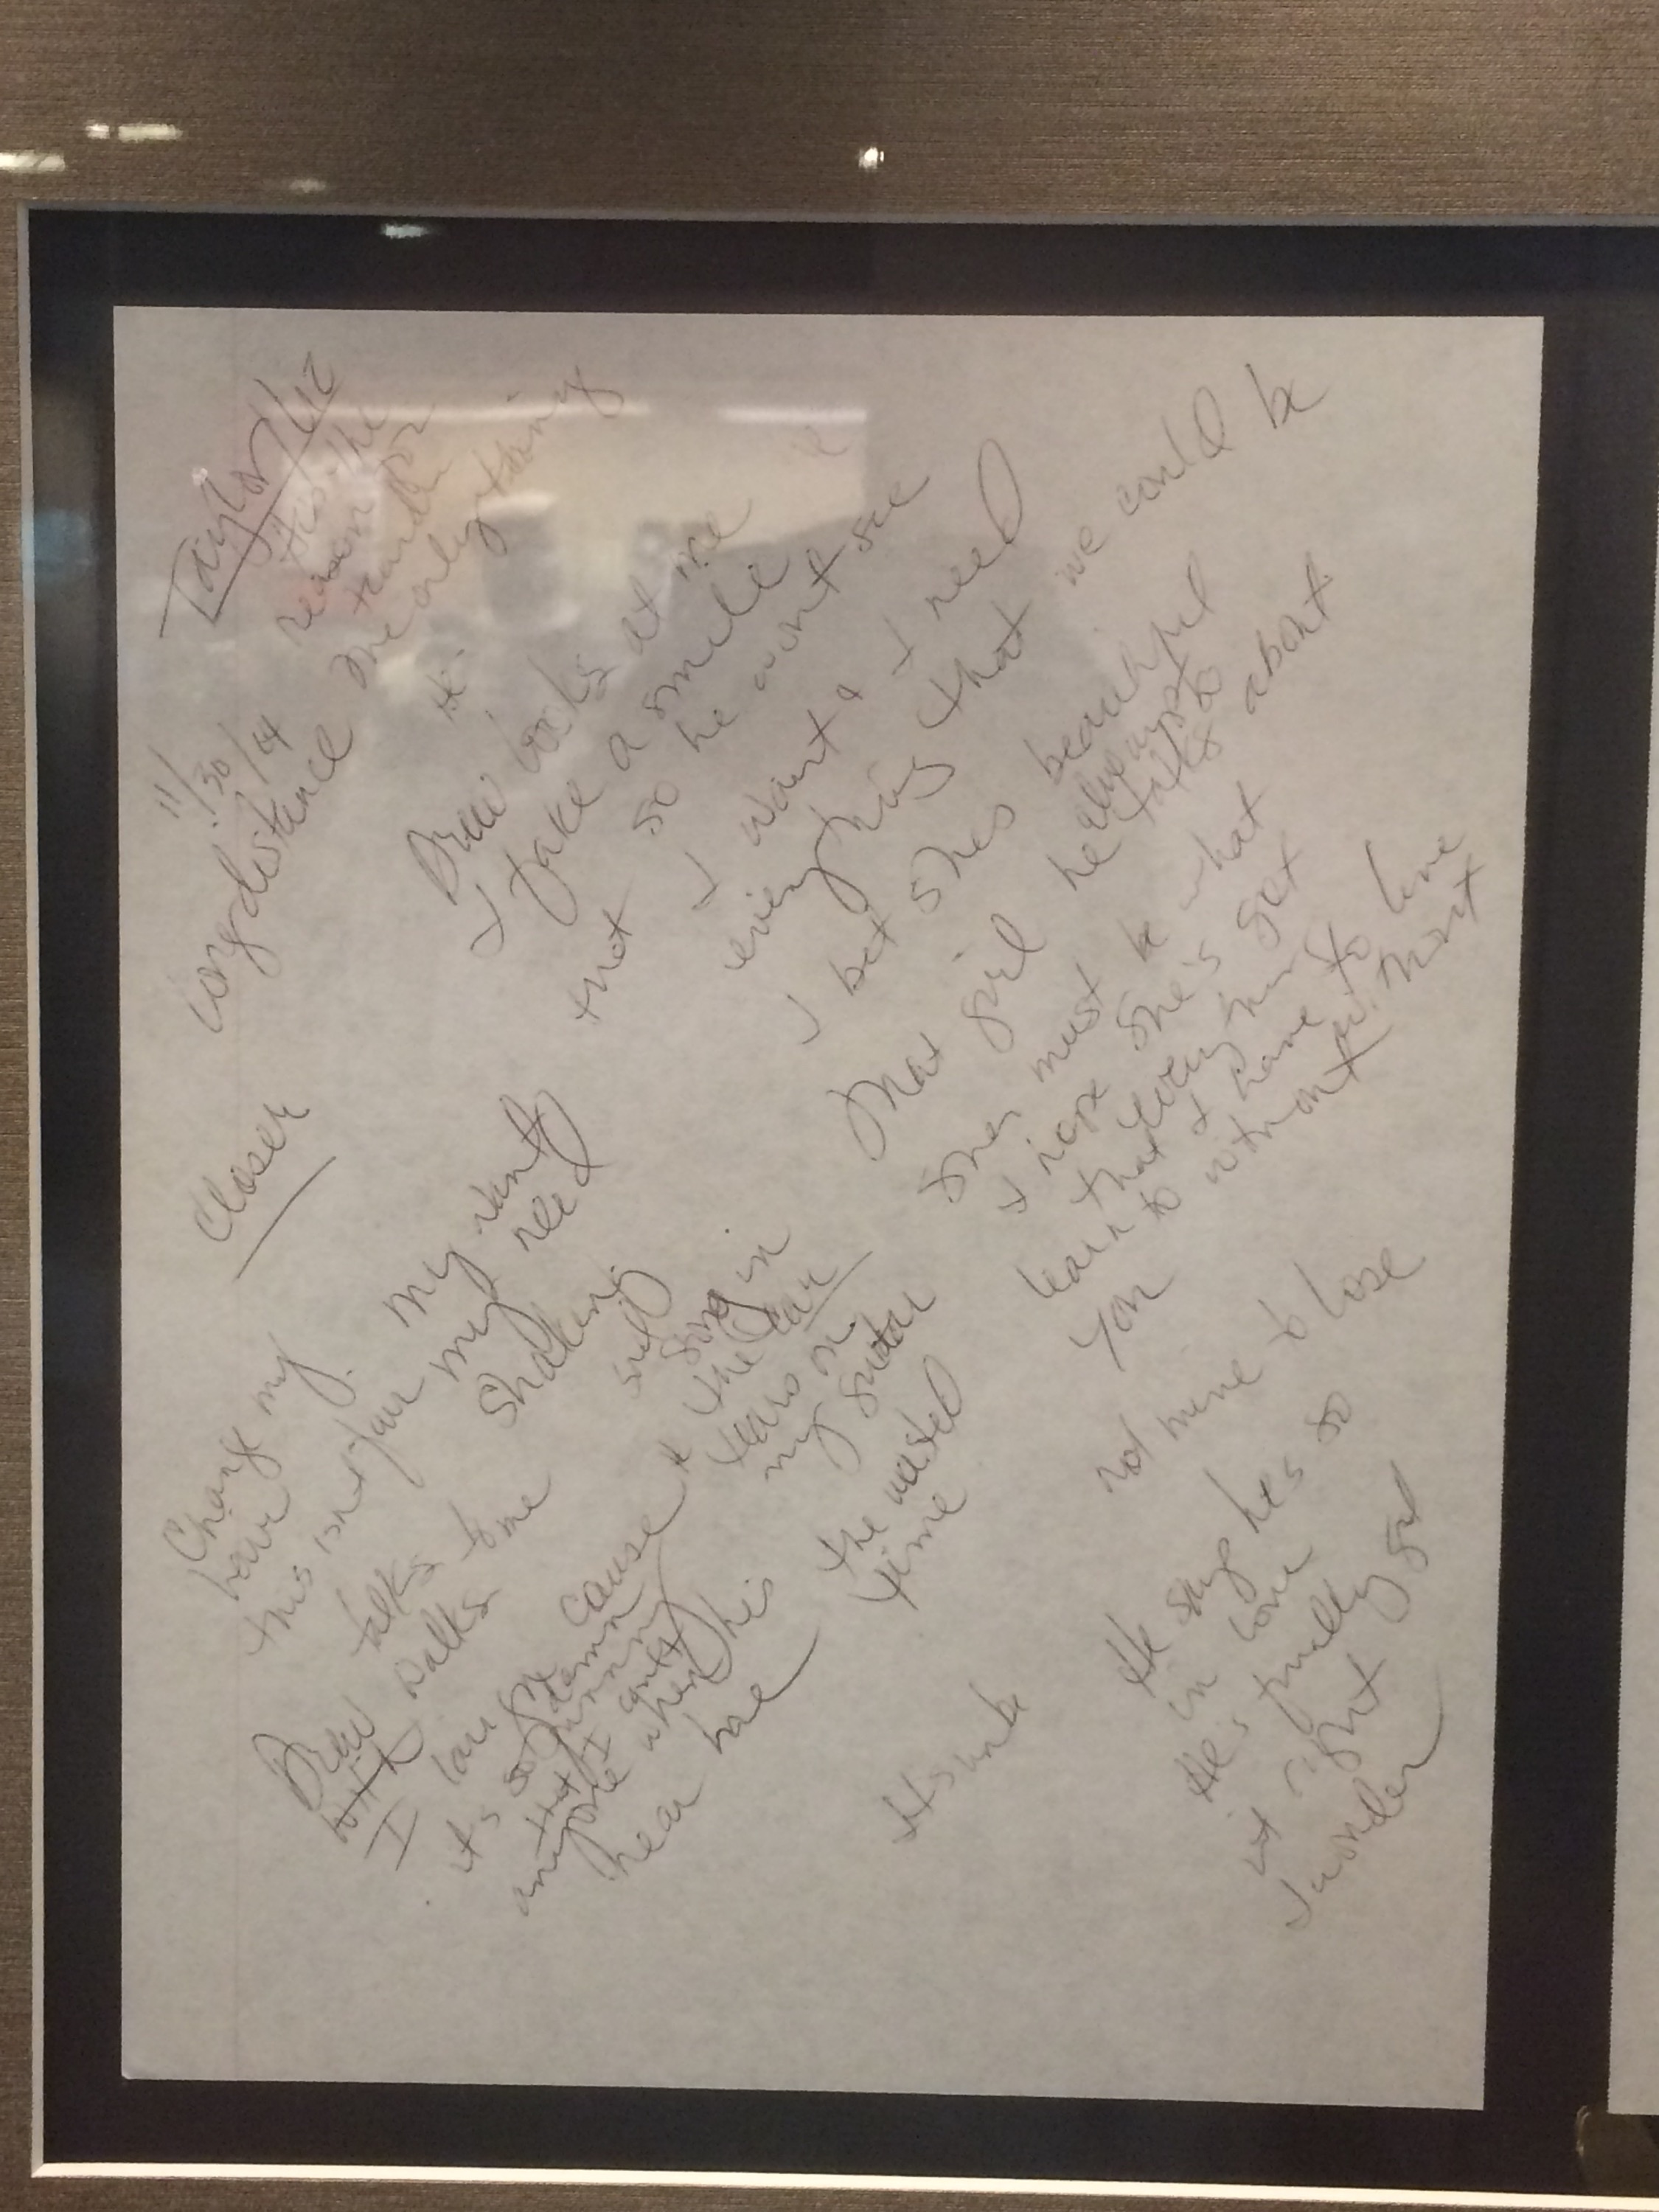 Taylor/Liz
11/30/04
longdistance
Closer
He's the
reason for
the teardr
the only thing
Drew looks at me
I fake a smile
so he wont see
that I want & I need
everything that we could be
I bet shes beautiful
that girl he talks about
he always
Shes must be what
I hope she's got
learn that everything
I have to live
to without
you
not mine to lose
Change my
hair
this isnt fair
My want
my need
Shaking
Drew talks to me
with walks
I laugh cause
its so damn funny
that I cant
anyone when his
hear
song in
the car
tears on
my guitar
the wasted
time
He says hes so
in love
He's finally got
it right
I wonder